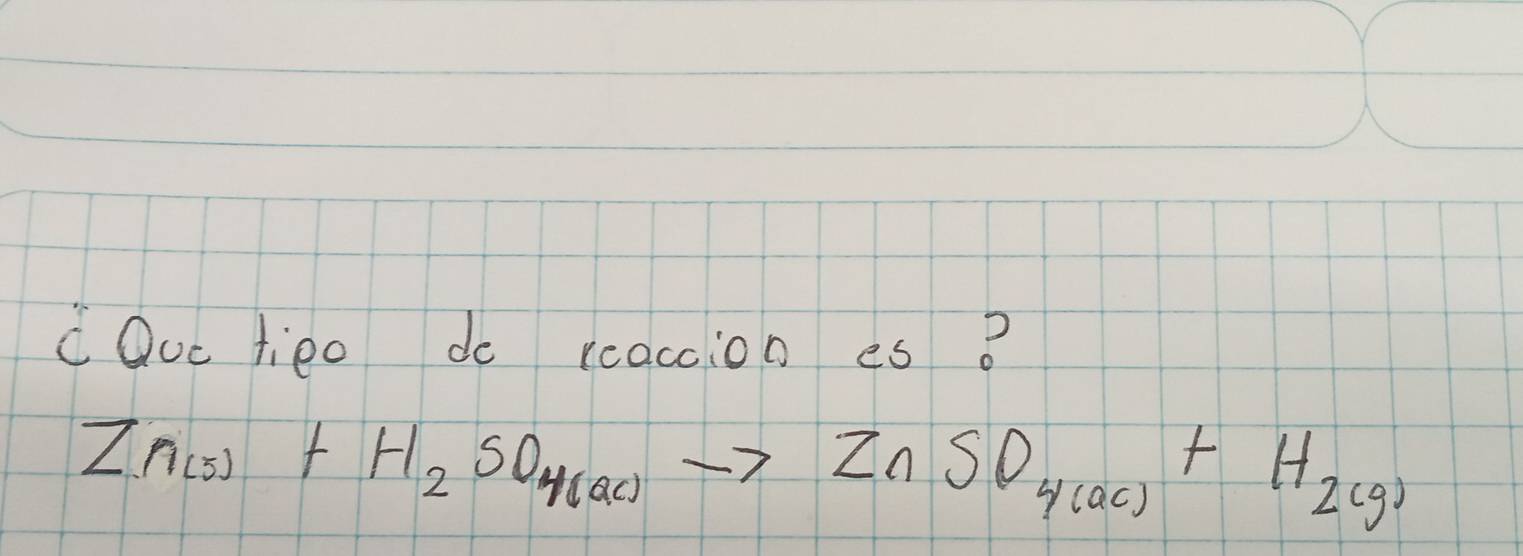 ¿Que tipo de reaccion es?
Zn(s) + H₂SO₄(ac) → ZnSO₄(ac) + H₂(g)